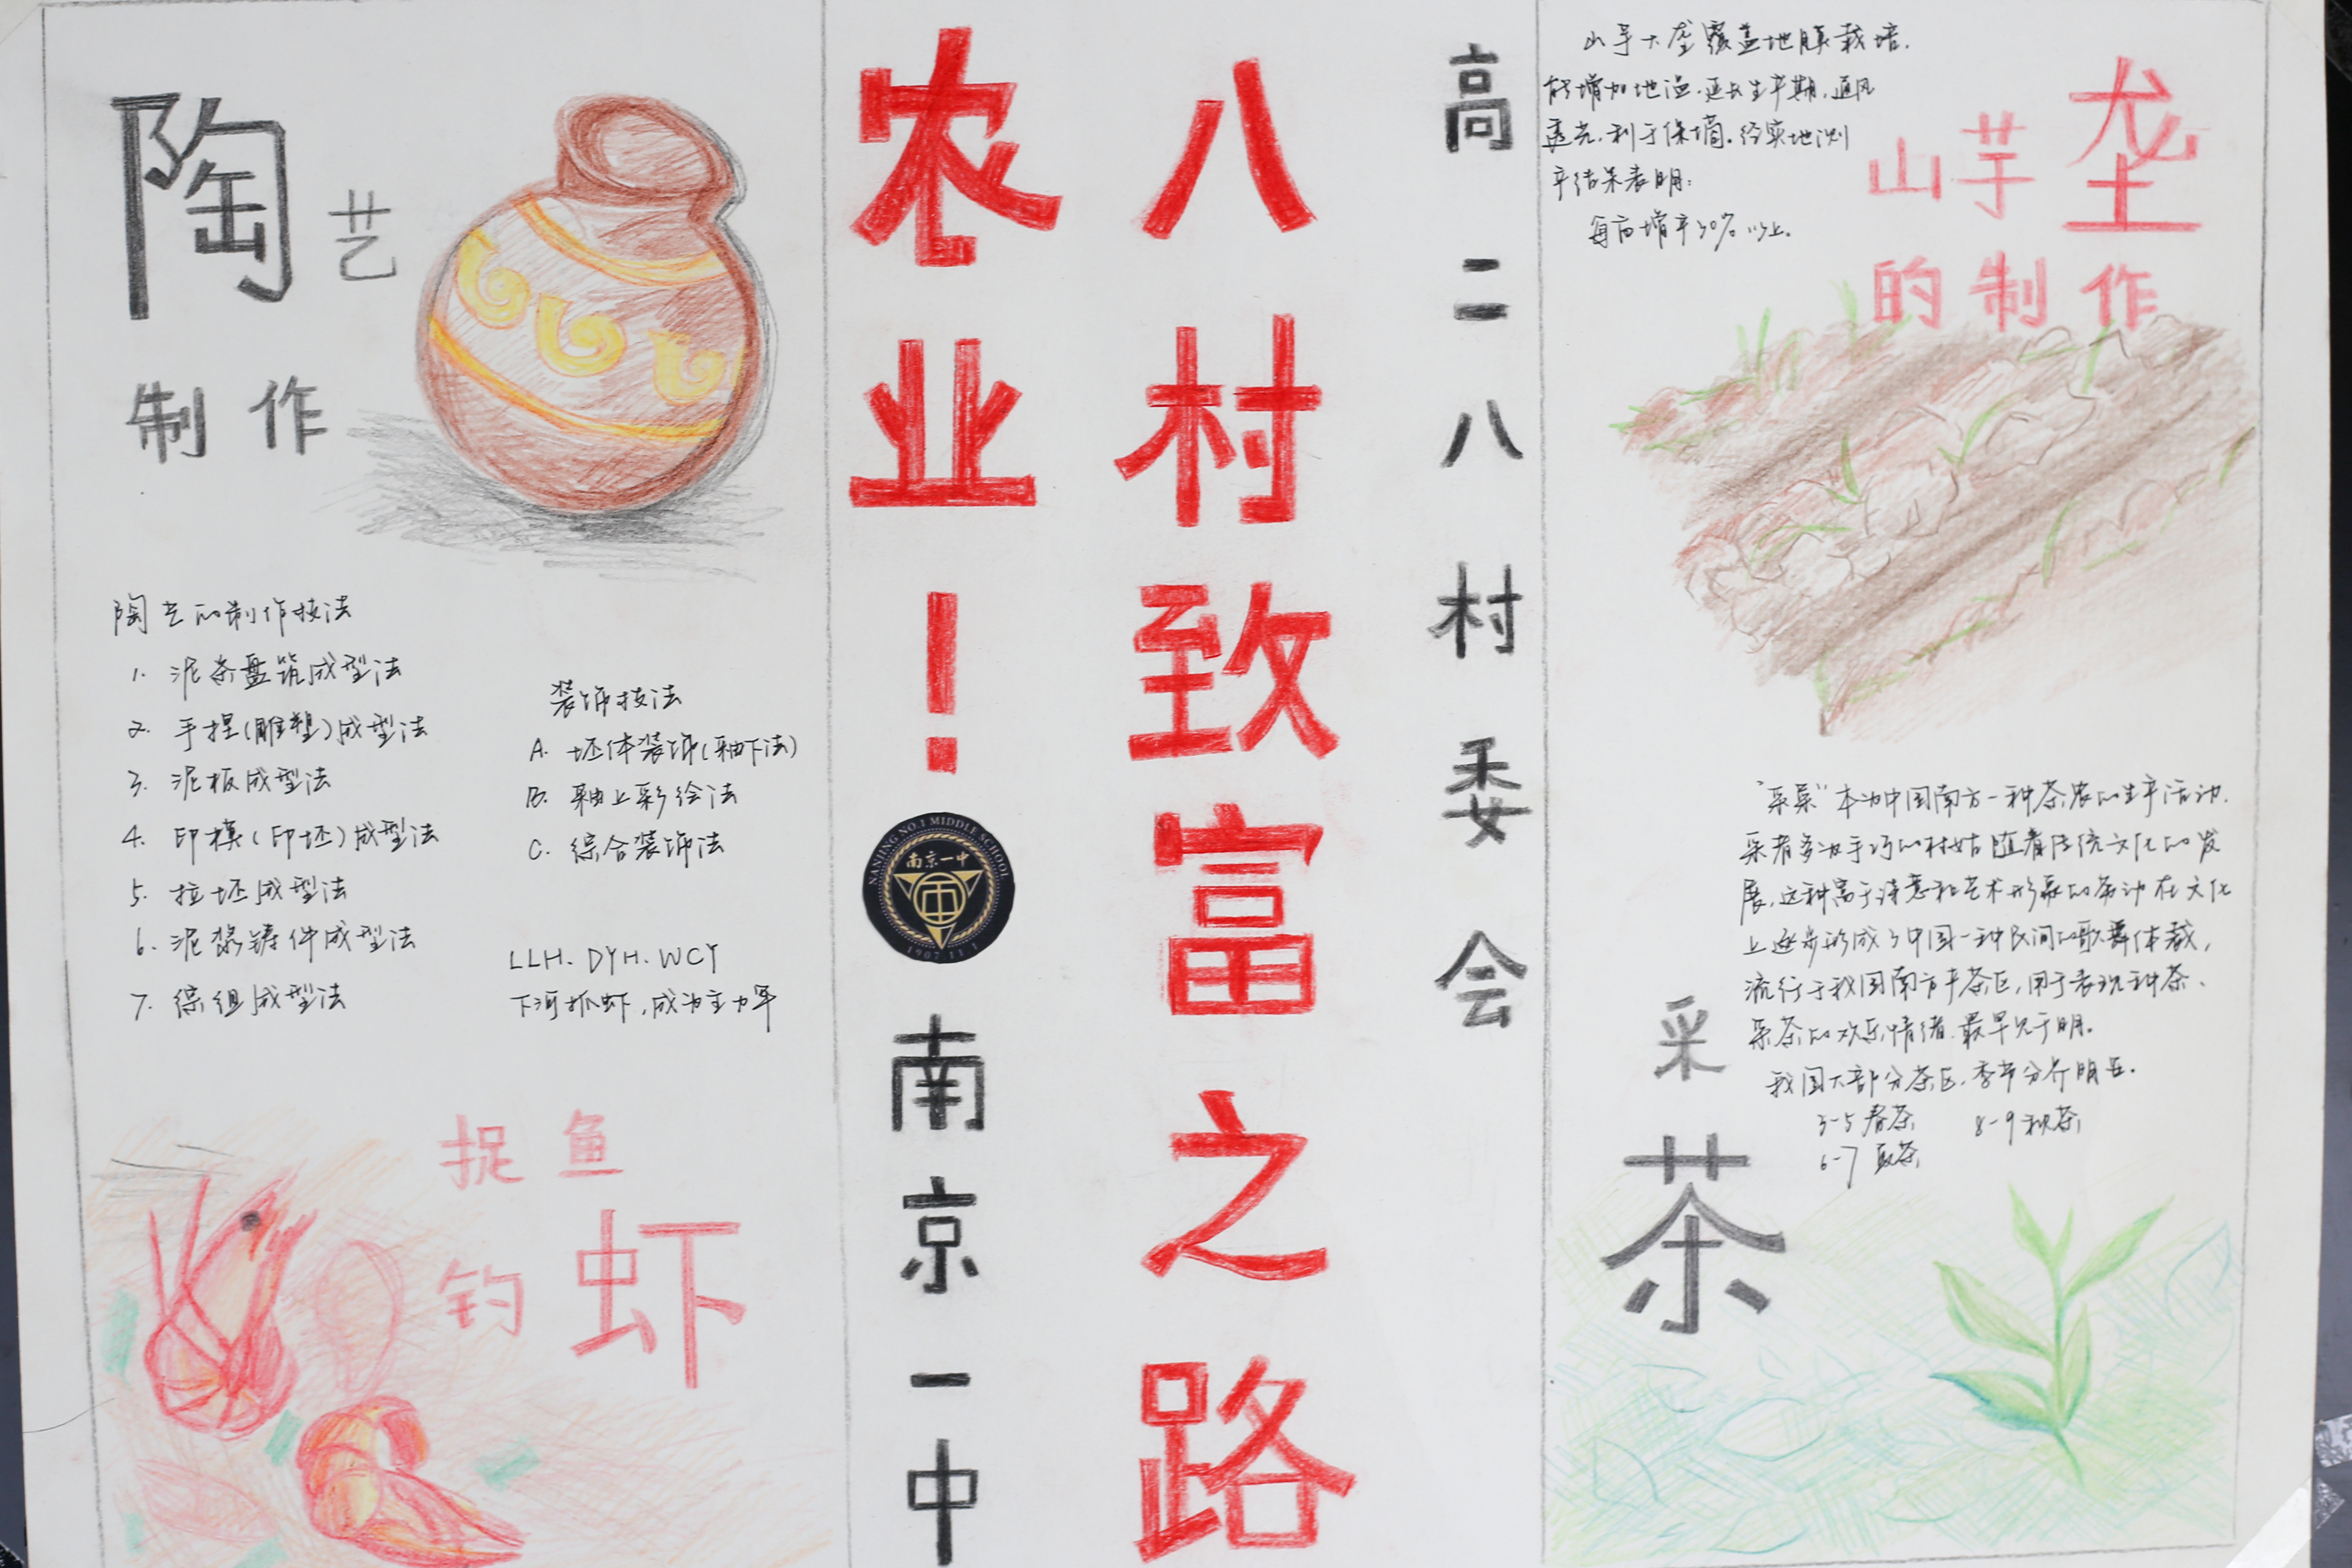 陶艺
制作
陶艺的制作技法
1. 泥条盘筑成型法
2. 手捏(雕塑)成型法
3. 泥板成型法
4. 印模(印坯)成型法
5. 拉坯成型法
6. 泥浆铸件成型法
7. 综组成型法
装饰技法
A. 坯体装饰(釉下法)
B. 釉上彩绘法
C. 综合装饰法
LLH. DYH. WCY
下河抓虾,成为主力军
捉鱼
钓虾
八村致富之路
农业!
NANJING NO.1 MIDDLE SCHOOL
南京一中
1907.11.1
南京一中
高二八村委会
山芋大垄覆盖地膜栽培.
能增加地温.延长生产期.通风
透光.利于保墒.经实地测
产结果表明:
每亩增产30%以上.
山芋垄
的制作
采茶
"采菜"本为中国南方一种茶农的生产活动.
采者多为手巧的村姑随着传统文化的发
展,这种富于诗意和艺术形象的劳动在文化
上逐步形成了中国一种民间的歌舞体裁,
流行于我国南方产茶区,用于表现种茶、
采茶的欢乐情绪.最早见于明.
我国大部分茶区,季节分界明显.
3-5春茶 8-9秋茶
6-7夏茶